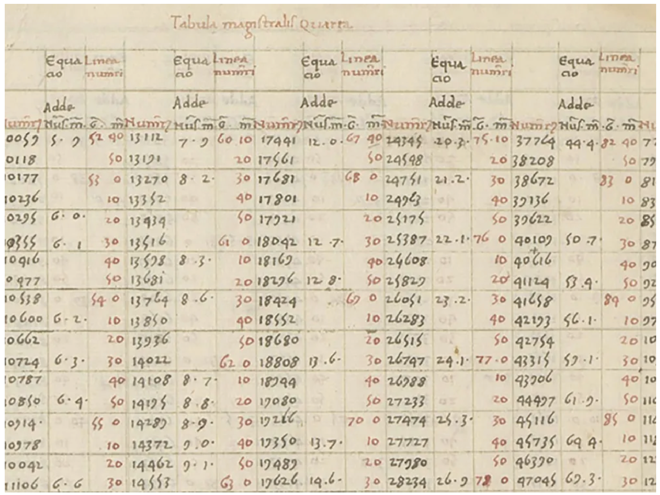 Tabula magistralis Quarta
Equa Linea Equa Linea Equa Linea Equa Linea Equa Linea
cio numeri cio numeri cio numeri cio numeri cio numeri
Adde Adde Adde Adde Adde
Numeri Nus. m. G. m Numeri Nus. m. G. m Numeri Nus. m. G. m Numeri Nus. m. G. m Numeri Nus. m. G. m
0059 5·9 52 40 13112 7·9 60 10 17441 12.0· 67 40 24345 20·3· 75·10 37764 44·4· 82 40 77
0118 50 13191 20 17561 50 24548 20 38208 50 79
10177 53 0 13270 8·2· 30 17681 68 0 24751 21.2· 30 38672 83 0 81
10236 10 13352 40 17801 10 24963 40 39136 10 83
10295 6·0· 20 13434 50 17921 20 25175 50 39622 20 85
0355 6·1 30 13516 61 0 18042 12·7· 30 25387 22.1· 76 0 40109 50·7· 30 87
10416 40 13598 8·3· 10 18169 40 25608 10 40616 40 90
0477 50 13681 20 18296 12 8· 50 25829 20 41124 53.4· 50 92
10538 54 0 13764 8·6· 30 18424 69 0 26051 23.2· 30 41658 84 0 95
10600 6·2· 10 13850 40 18552 10 26283 40 42193 56.1· 10 97
10662 20 13936 50 18680 20 26515 50 42754 20 10
10724 6·3· 30 14022 62 0 18808 13·6· 30 26747 24.1· 77·0 43315 59·1· 30 10
10787 40 14108 8·7· 10 18944 40 26988 10 43906 40 10
10850 6·4· 50 14195 8·8· 20 19080 50 27233 20 44497 61·9· 50 110
10914· 55 0 14289 8·9· 30 19216 70 0 27474 25·3· 30 45116 85 0 114
10978 10 14372 9·0· 40 19350 13·7· 10 27727 40 45735 64 4· 10 118
10042 20 14462 9·1· 50 19489 20 27980 50 46390 20 12
11106 6·6 30 14553 63 0 19626 14·6· 30 28234 26·9 78 0 47045 69·3· 30 12